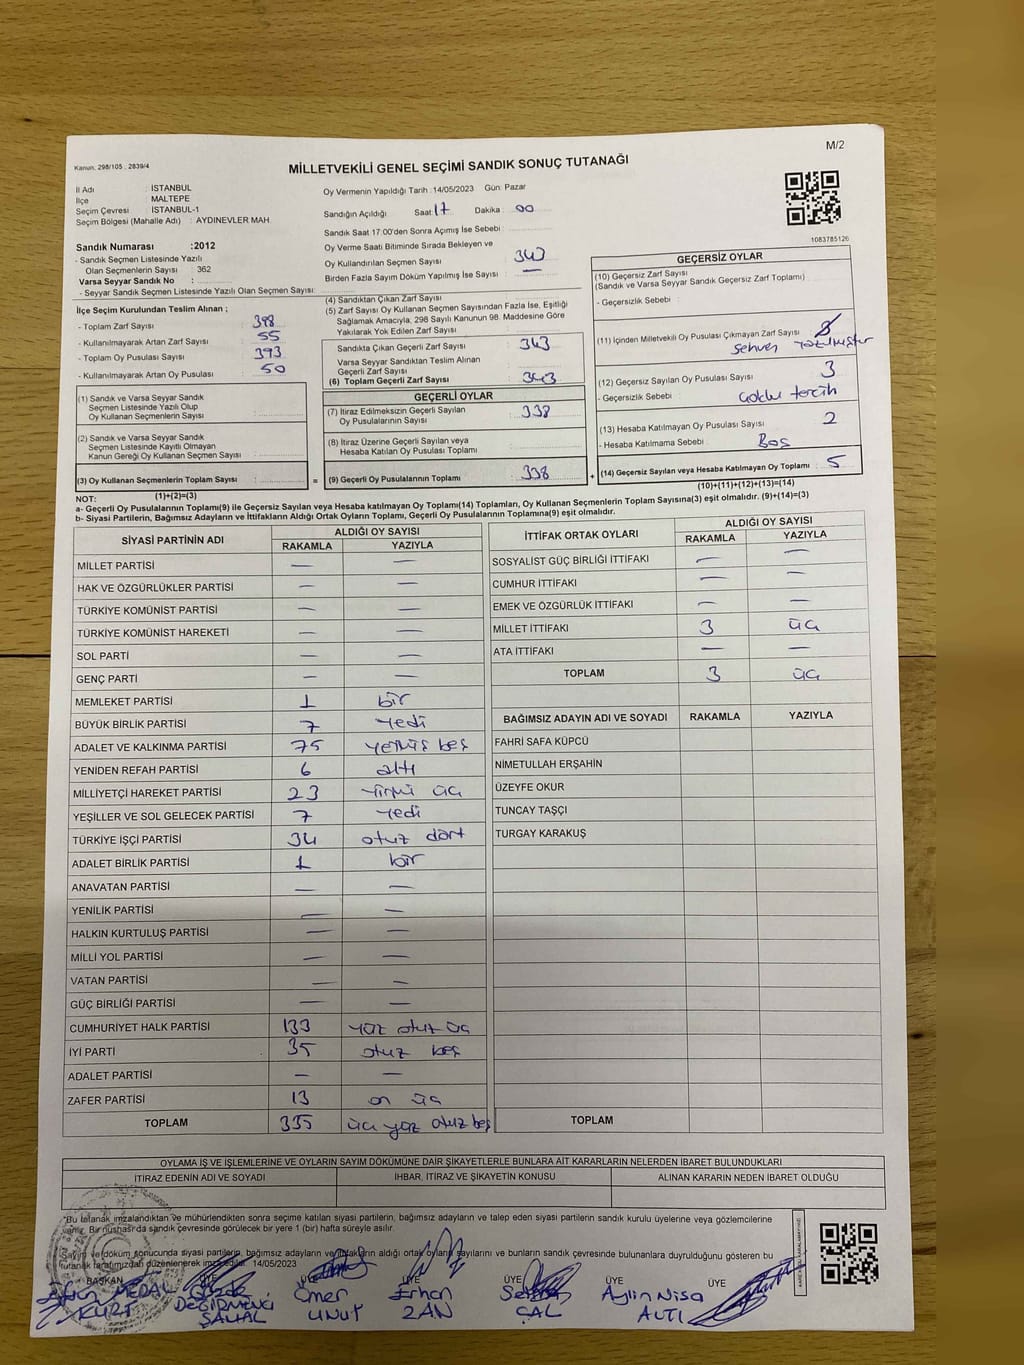 M/2
Kanun: 298/105 , 2839/4
MİLLETVEKİLİ GENEL SEÇİMİ SANDIK SONUÇ TUTANAĞI
İl Adı : İSTANBUL
İlçe : MALTEPE
Seçim Çevresi : İSTANBUL-1
Seçim Bölgesi (Mahalle Adı) : AYDINEVLER MAH.
Sandık Numarası :2012
- Sandık Seçmen Listesinde Yazılı
Olan Seçmenlerin Sayısı : 362
Varsa Seyyar Sandık No :
- Seyyar Sandık Seçmen Listesinde Yazılı Olan Seçmen Sayısı:
Oy Vermenin Yapıldığı Tarih :14/05/2023 Gün: Pazar
Sandığın Açıldığı Saat: 17 Dakika : 00
Sandık Saat 17:00'den Sonra Açımış İse Sebebi :
Oy Verme Saati Bitiminde Sırada Bekleyen ve
Oy Kullandırılan Seçmen Sayısı : 343
Birden Fazla Sayım Döküm Yapılmış İse Sayısı : —
1083785126
İlçe Seçim Kurulundan Teslim Alınan ;
- Toplam Zarf Sayısı : 398
- Kullanılmayarak Artan Zarf Sayısı : 55
- Toplam Oy Pusulası Sayısı : 393
- Kullanılmayarak Artan Oy Pusulası : 50
(1) Sandık ve Varsa Seyyar Sandık
Seçmen Listesinde Yazılı Olup
Oy Kullanan Seçmenlerin Sayısı :
(2) Sandık ve Varsa Seyyar Sandık
Seçmen Listesinde Kayıtlı Olmayan
Kanun Gereği Oy Kullanan Seçmen Sayısı :
(3) Oy Kullanan Seçmenlerin Toplam Sayısı :
(1)+(2)=(3)
(4) Sandıktan Çıkan Zarf Sayısı :
(5) Zarf Sayısı Oy Kullanan Seçmen Sayısından Fazla İse, Eşitliği
Sağlamak Amacıyla; 298 Sayılı Kanunun 98. Maddesine Göre
Yakılarak Yok Edilen Zarf Sayısı :
Sandıkta Çıkan Geçerli Zarf Sayısı : 343
Varsa Seyyar Sandıktan Teslim Alınan
Geçerli Zarf Sayısı :
(6) Toplam Geçerli Zarf Sayısı : 343
GEÇERLİ OYLAR
(7) İtiraz Edilmeksizin Geçerli Sayılan
Oy Pusulalarının Sayısı : 338
(8) İtiraz Üzerine Geçerli Sayılan veya
Hesaba Katılan Oy Pusulası Toplamı :
= (9) Geçerli Oy Pusulalarının Toplamı : 338 +
GEÇERSİZ OYLAR
(10) Geçersiz Zarf Sayısı :
(Sandık ve Varsa Seyyar Sandık Geçersiz Zarf Toplamı)
- Geçersizlik Sebebi :
(11) İçinden Milletvekili Oy Pusulası Çıkmayan Zarf Sayısı :
Sehven yazılmıştır
(12) Geçersiz Sayılan Oy Pusulası Sayısı : 3
- Geçersizlik Sebebi : çoklu tercih
(13) Hesaba Katılmayan Oy Pusulası Sayısı : 2
- Hesaba Katılmama Sebebi : Boş
(14) Geçersiz Sayılan veya Hesaba Katılmayan Oy Toplamı : 5
(10)+(11)+(12)+(13)=(14)
NOT:
a- Geçerli Oy Pusulalarının Toplamı(9) ile Geçersiz Sayılan veya Hesaba katılmayan Oy Toplamı(14) Toplamları, Oy Kullanan Seçmenlerin Toplam Sayısına(3) eşit olmalıdır. (9)+(14)=(3)
b- Siyasi Partilerin, Bağımsız Adayların ve İttifakların Aldığı Ortak Oyların Toplamı, Geçerli Oy Pusulalarının Toplamına(9) eşit olmalıdır.
SİYASİ PARTİNİN ADI ALDIĞI OY SAYISI
RAKAMLA YAZIYLA
MİLLET PARTİSİ — —
HAK VE ÖZGÜRLÜKLER PARTİSİ — —
TÜRKİYE KOMÜNİST PARTİSİ — —
TÜRKİYE KOMÜNİST HAREKETİ — —
SOL PARTİ — —
GENÇ PARTİ — —
MEMLEKET PARTİSİ 1 bir
BÜYÜK BİRLİK PARTİSİ 7 yedi
ADALET VE KALKINMA PARTİSİ 75 yetmiş beş
YENİDEN REFAH PARTİSİ 6 altı
MİLLİYETÇİ HAREKET PARTİSİ 23 yirmi üç
YEŞİLLER VE SOL GELECEK PARTİSİ 7 yedi
TÜRKİYE İŞÇİ PARTİSİ 34 otuz dört
ADALET BİRLİK PARTİSİ 1 bir
ANAVATAN PARTİSİ — —
YENİLİK PARTİSİ — —
HALKIN KURTULUŞ PARTİSİ — —
MİLLİ YOL PARTİSİ — —
VATAN PARTİSİ — —
GÜÇ BİRLİĞİ PARTİSİ — —
CUMHURİYET HALK PARTİSİ 133 yüz otuz üç
İYİ PARTİ 35 otuz beş
ADALET PARTİSİ — —
ZAFER PARTİSİ 13 on üç
TOPLAM 335 üç yüz otuz beş
İTTİFAK ORTAK OYLARI ALDIĞI OY SAYISI
RAKAMLA YAZIYLA
SOSYALİST GÜÇ BİRLİĞİ İTTİFAKI — —
CUMHUR İTTİFAKI — —
EMEK VE ÖZGÜRLÜK İTTİFAKI — —
MİLLET İTTİFAKI 3 üç
ATA İTTİFAKI — —
TOPLAM 3 üç
BAĞIMSIZ ADAYIN ADI VE SOYADI RAKAMLA YAZIYLA
FAHRİ SAFA KÜPCÜ
NİMETULLAH ERŞAHİN
ÜZEYFE OKUR
TUNCAY TAŞÇI
TURGAY KARAKUŞ
TOPLAM
OYLAMA İŞ VE İŞLEMLERİNE VE OYLARIN SAYIM DÖKÜMÜNE DAİR ŞİKAYETLERLE BUNLARA AİT KARARLARIN NELERDEN İBARET BULUNDUKLARI
İTİRAZ EDENİN ADI VE SOYADI İHBAR, İTİRAZ VE ŞİKAYETİN KONUSU ALINAN KARARIN NEDEN İBARET OLDUĞU
"Bu tutanak imzalandıktan ve mühürlendikten sonra seçime katılan siyasi partilerin, bağımsız adayların ve talep eden siyasi partilerin sandık kurulu üyelerine veya gözlemcilerine
verilir. Bir nüshası da sandık çevresinde görülecek bir yere 1 (bir) hafta süreyle asılır.
Sayım ve döküm sonucunda siyasi partilerin, bağımsız adayların ve ittifakların aldığı ortak oyların sayılarını ve bunların sandık çevresinde bulunanlara duyrulduğunu gösteren bu
tutanak tarafımızdan düzenlenerek imza edildi. 14/05/2023
BAŞKAN ÜYE ÜYE ÜYE ÜYE ÜYE ÜYE
MEDAR Ömer Erhan Aylin Nisa
KURT DEĞİRMENCİ UNUT ZAN ÇAL ALTI
ŞAHAL